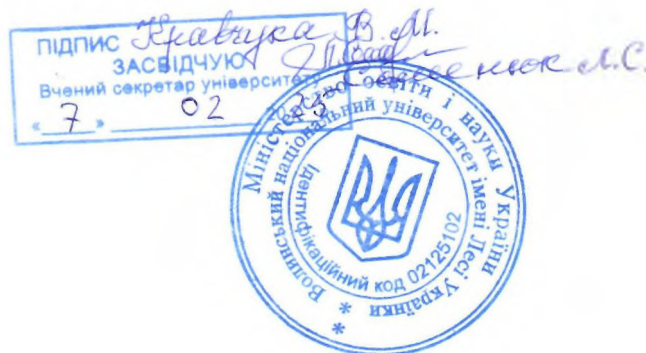 ПІДПИС Кравчука В.М.
ЗАСВІДЧУЮ
Вчений секретар університету
« 7 » 02
Міністерство освіти і науки України
Волинський національний університет імені Лесі Українки
Ідентифікаційний код 02125102